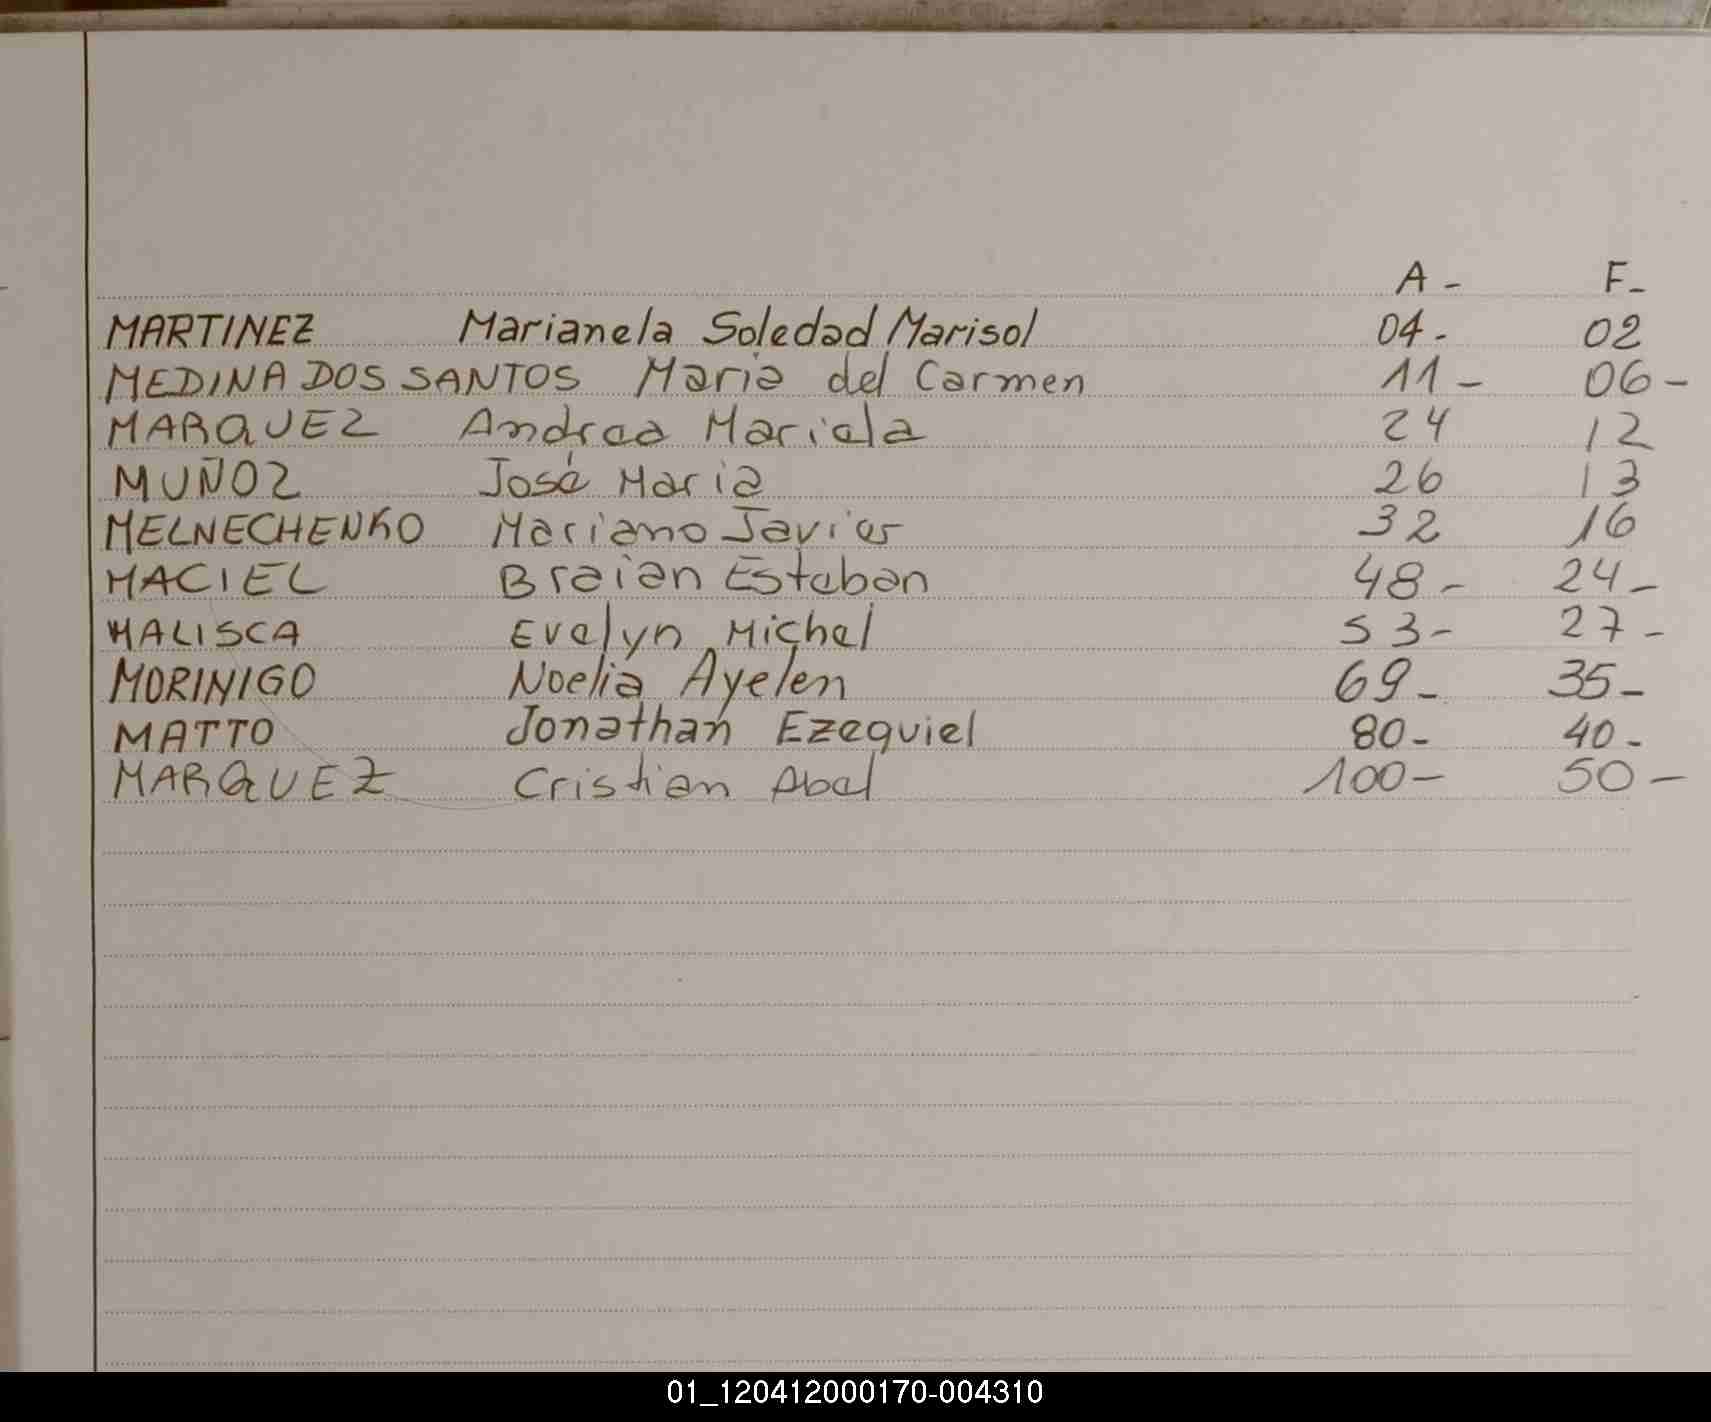 A - F-
MARTINEZ Marianela Soledad Marisol 04- 02
MEDINA DOS SANTOS Maria del Carmen 11- 06-
MARQUEZ Andrea Mariela 24 12
MUÑOZ José Maria 26 13
MELNECHENKO Mariano Javier 32 16
MACIEL Braian Esteban 48- 24-
MALISCA Evelyn Michel 53- 27-
MORINIGO Noelia Ayelen 69- 35-
MATTO Jonathan Ezequiel 80- 40-
MARQUEZ Cristian Abel 100- 50-
01_120412000170-004310